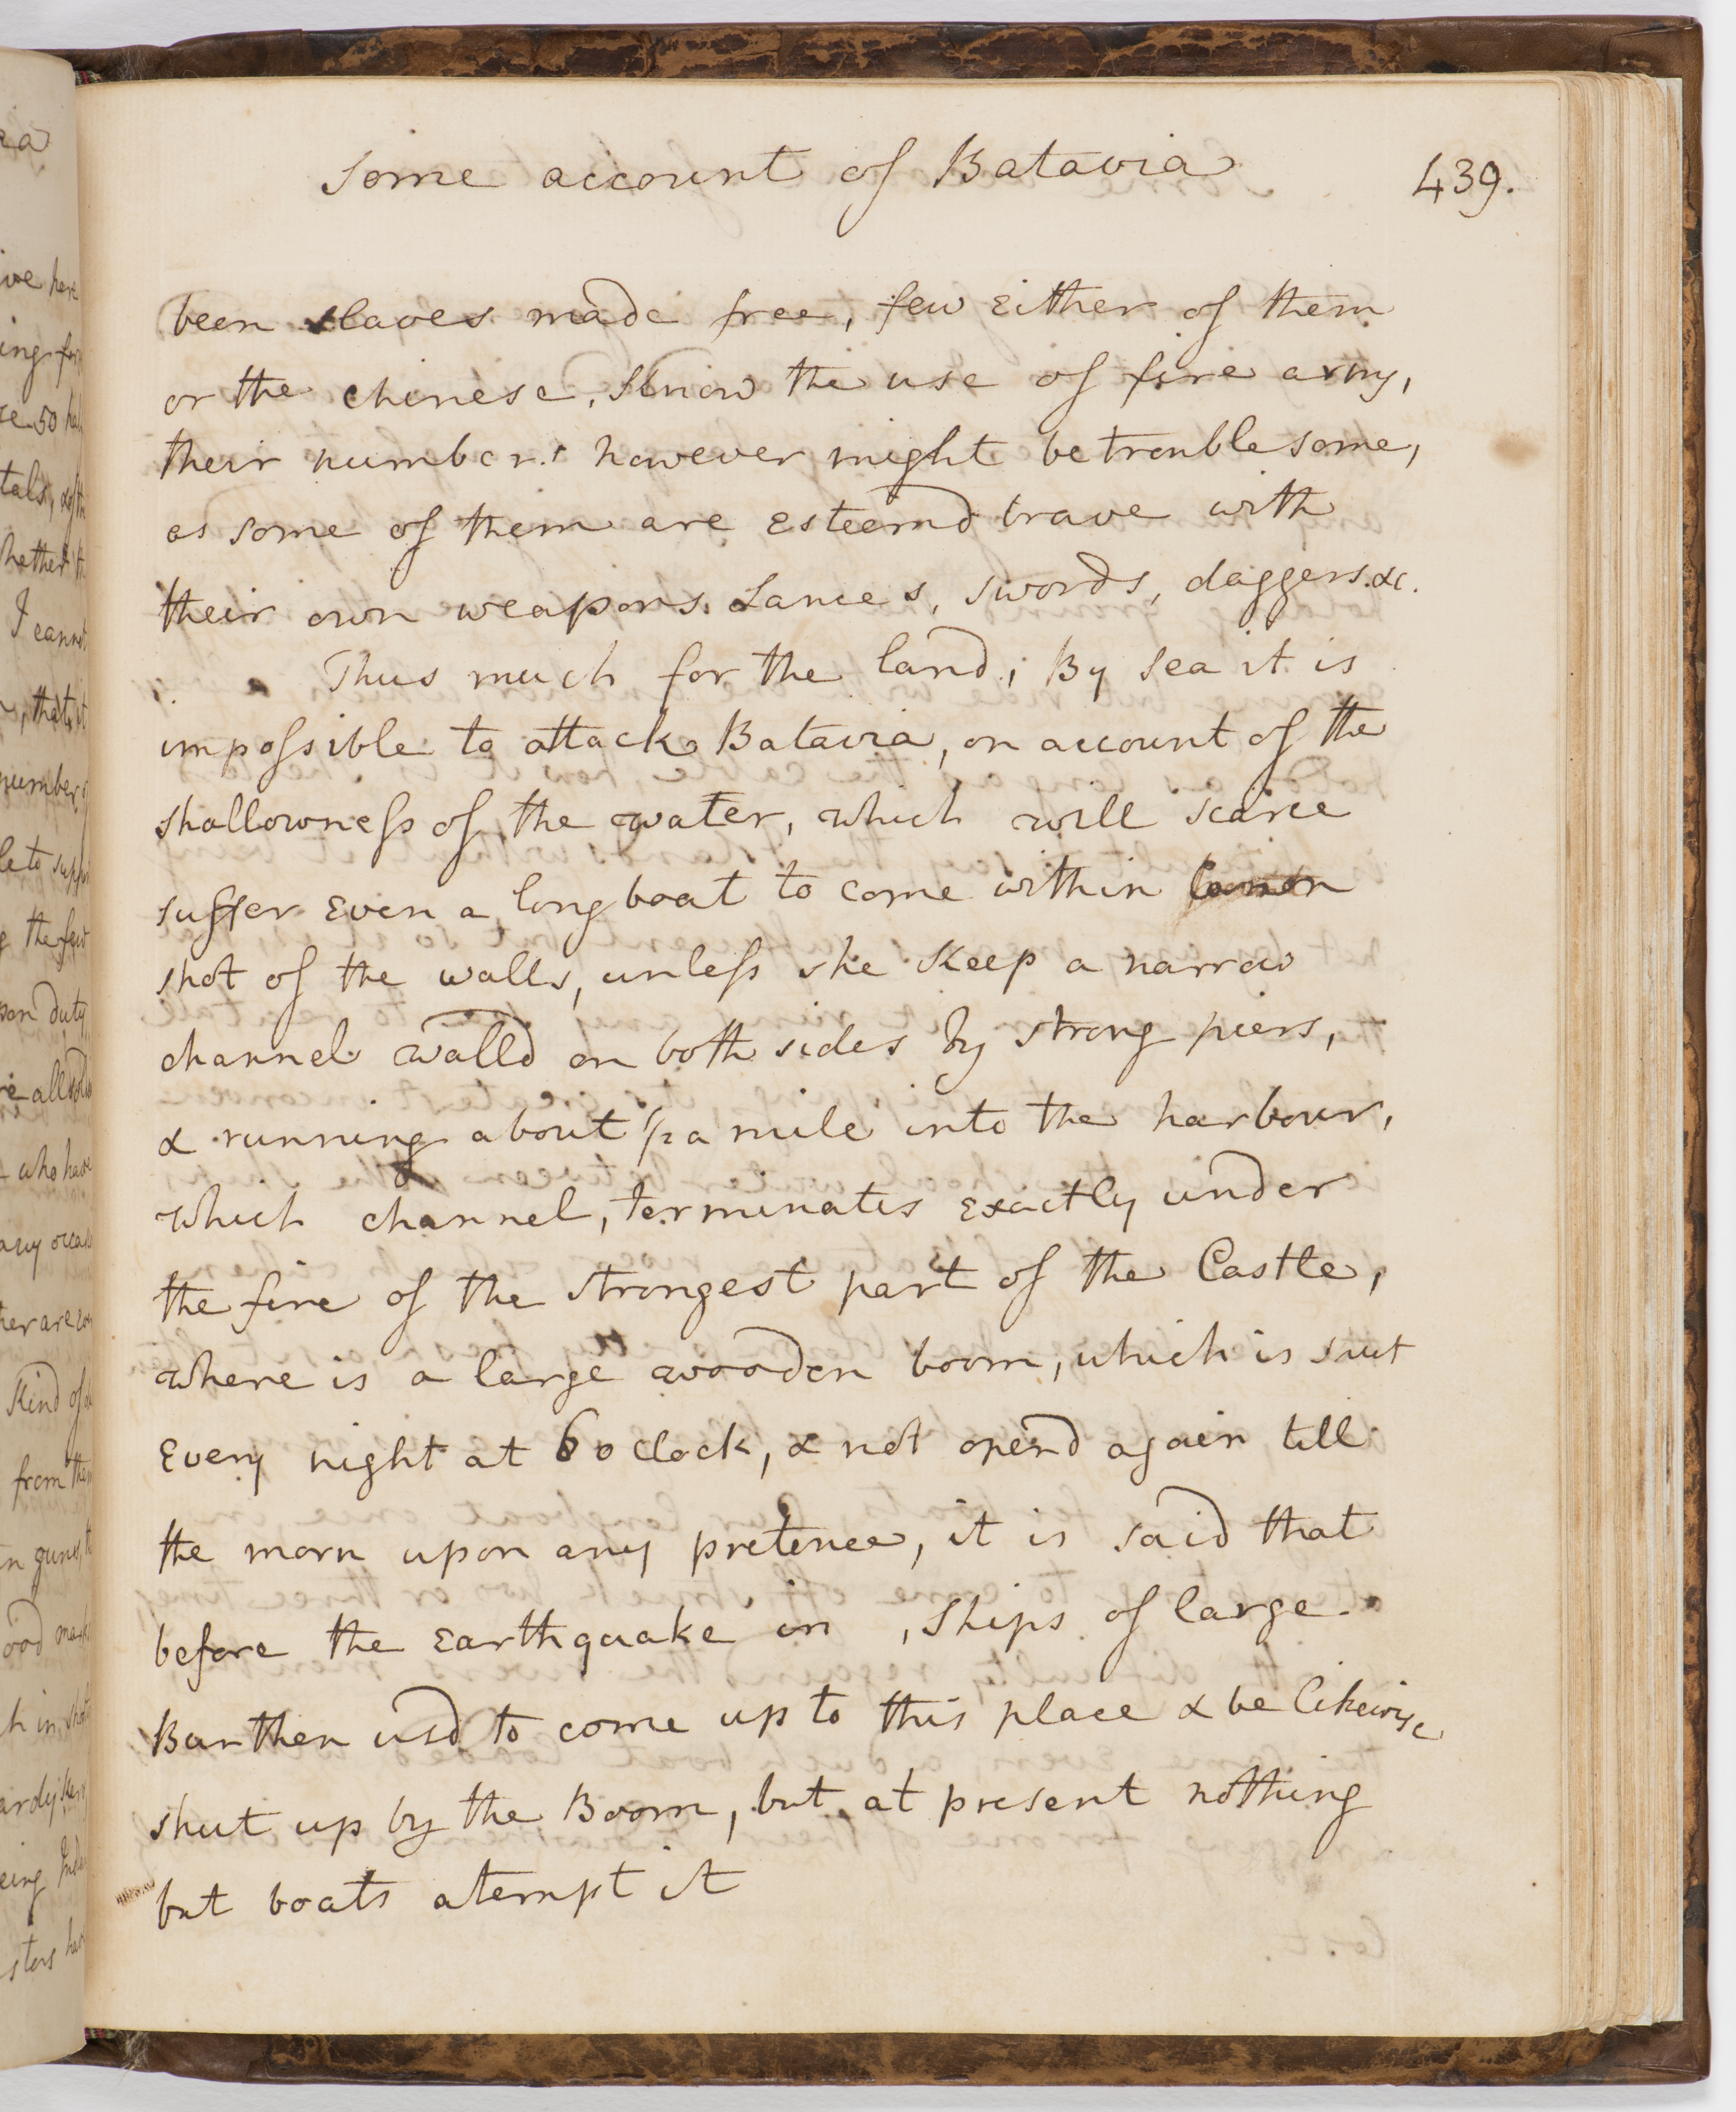 Some account of Batavia
439.
been slaves made free, few Either of them
or the chinese, Know the use of fire arms,
their numbers however might be troublesome,
as some of them are esteemd brave with
their own weapons. Lances, swords, daggers. &c.
Thus much for the land; By Sea it is
impossible to attack Batavia, on account of the
shallowness of the water, which will scarce
suffer Even a long boat to come within
shot of the walls, unless she Keep a narrow
channel walld on both sides by strong piers,
& running about 1/2 a mile into the harbour,
which channel, terminates Exactly under
the fire of the strongest part of the Castle,
where is a large wooden boom, which is shut
Every night at 6 o clock, & not opend again till
the morn upon any pretence, it is said that
before the Earthquake in , Ships of large
Burthen usd to come up to this place & be likewise
shut up by the Boom, but at present nothing
but boats atempt it